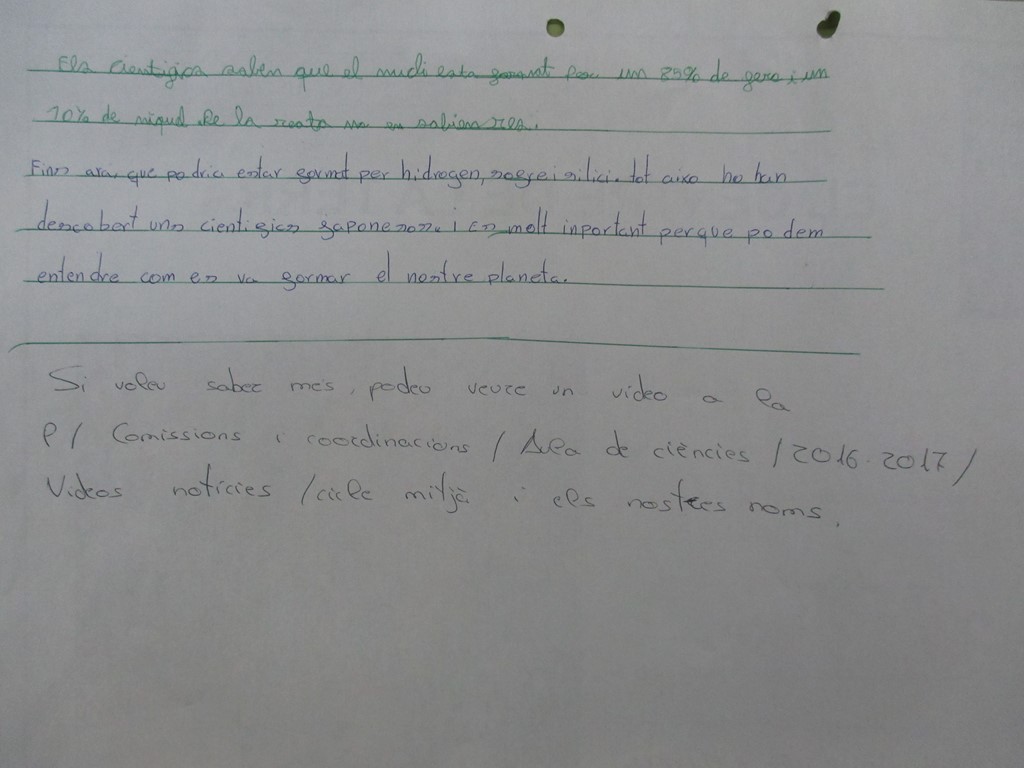 Els cientifics saben que el nucli esta format per un 85% de ferro i un
10% de niquel de la resta no en sabien res.
Fins ara, que podria estar format per hidrogen, sofre i silici. tot aixo ho han
descobert uns cientifics japonesos. i es molt inportant perque podem
entendre com es va formar el nostre planeta.
Si voleu saber més, podeu veure un video a la
P/ Comissions i coordinacions / Àrea de ciències / 2016-2017 /
Videos notícies / cicle mitjà i els nostres noms.